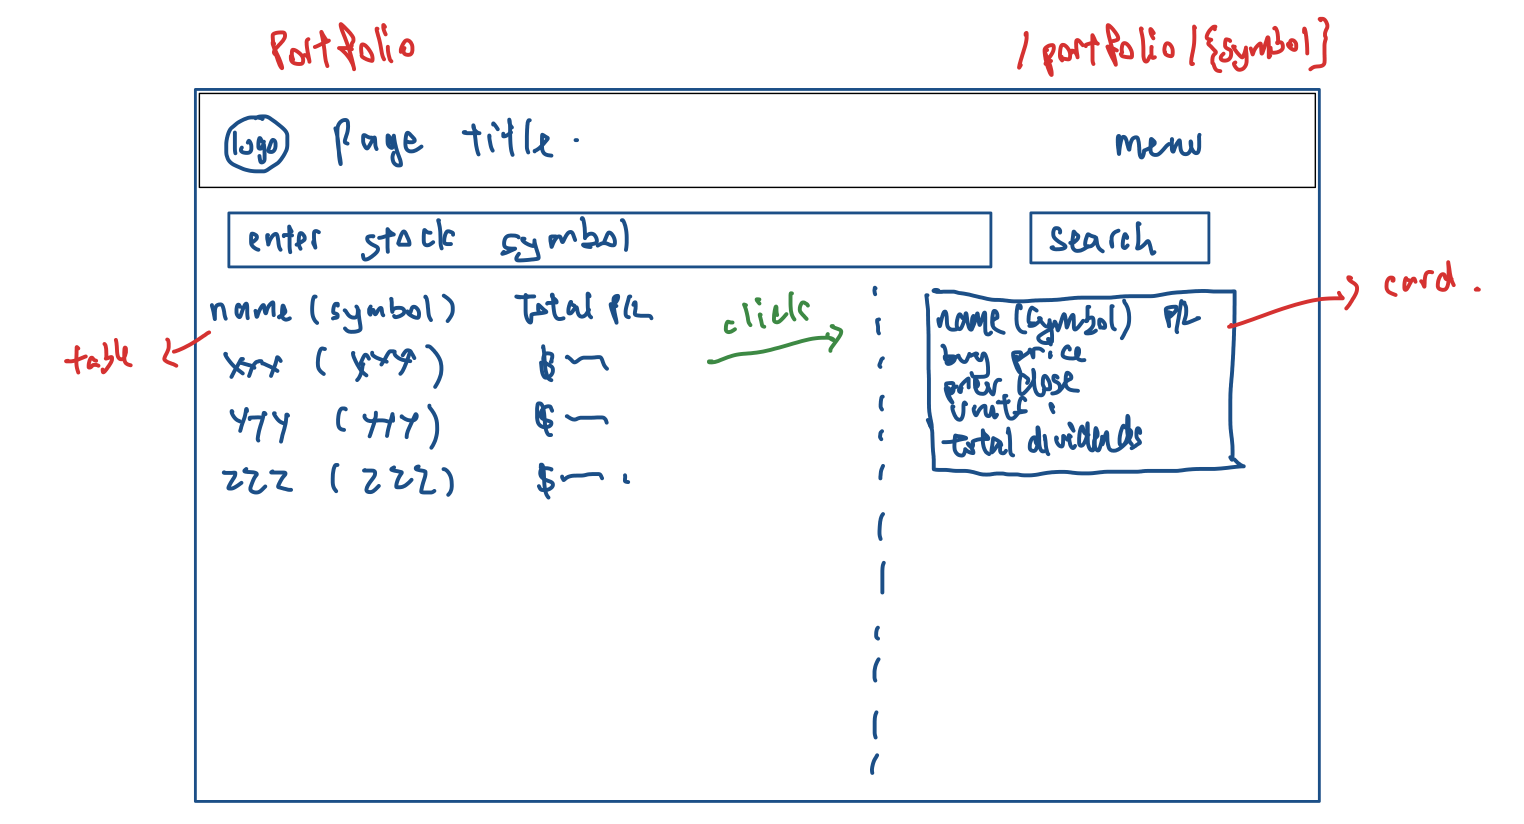 Portfolio
/portfolio/{symbol}
logo Page title. menu
enter stock symbol
search
name (symbol) total P/L
xxx (xxx) $
yyy (yyy) $
zzz (zzz) $
table
click
name (symbol) P/L
buy price
prev close
units :
total dividends
card.